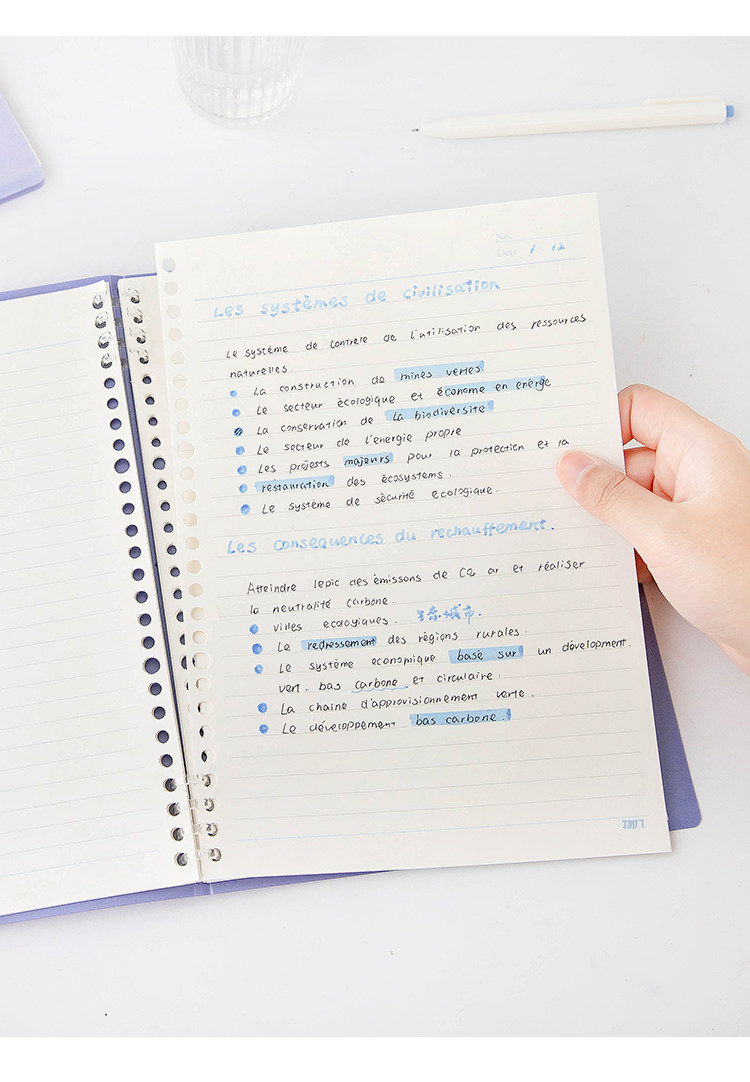 No.
Date 1 12
Les systèmes de civilisation
Le système de controle de l'utilisation des ressources
naturelles
La construction de mines vertes
Le secteur écologique et économe en énergie
La conservation de la biodiversite
Le secteur de l'energie propre
Les projests majeurs pour la protection et la
restauration des écosystems.
Le système de sécurité ecologique.
Les consequences du rechauffement.
Atteindre lepic des émissons de CO2 ar et réaliser
la neutralité carbone.
villes ecologiques. 生态城市.
Le redressement des règions rurales.
Le système economique base sur un dévelopment.
vert. bas carbone et circulaire.
La chaine d'approvisionnement verte.
Le développement bas carbone.